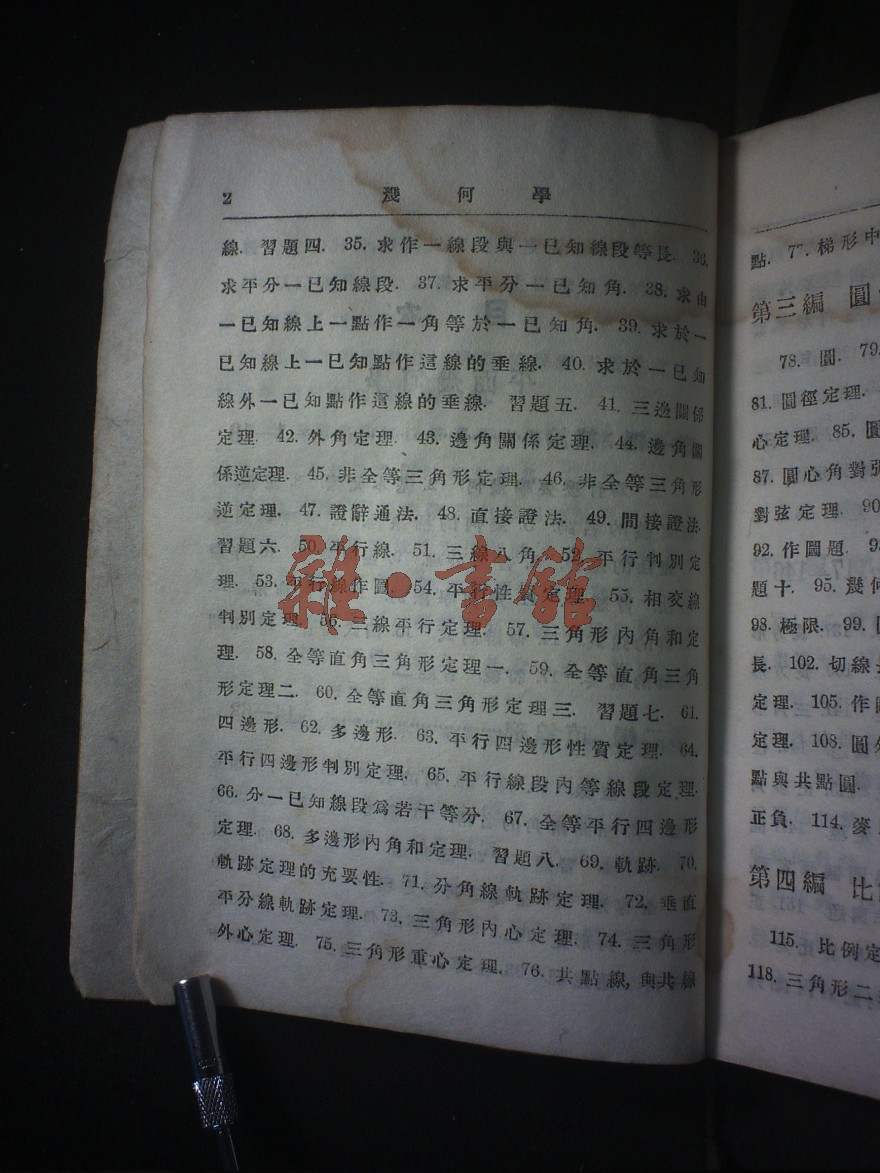 2 幾何學
線. 習題四. 35. 求作一線段與一已知線段等長. 36.
求平分一已知線段. 37. 求平分一已知角. 38. 求由
一已知線上一點作一角等於一已知角. 39. 求於一
已知線上一已知點作這線的垂線. 40. 求於一已知
線外一已知點作這線的垂線. 習題五. 41. 三邊關係
定理. 42. 外角定理. 43. 邊角關係定理. 44. 邊角關
係逆定理. 45. 非全等三角形定理. 46. 非全等三角形
逆定理. 47. 證辭通法. 48. 直接證法. 49. 間接證法.
習題六. 50. 平行線. 51. 三線八角. 52. 平行判別定
理. 53. 平行線作圖. 54. 平行性質定理. 55. 相交線
判別定理. 56. 三線平行定理. 57. 三角形內角和定
理. 58. 全等直角三角形定理一. 59. 全等直角三角
形定理二. 60. 全等直角三角形定理三. 習題七. 61.
四邊形. 62. 多邊形. 63. 平行四邊形性質定理. 64.
平行四邊形判別定理. 65. 平行線段內等線段定理.
66. 分一已知線段爲若干等分. 67. 全等平行四邊形
定理. 68. 多邊形內角和定理. 習題八. 69. 軌跡. 70.
軌跡定理的充要性. 71. 分角線軌跡定理. 72. 垂直
平分線軌跡定理. 73. 三角形內心定理. 74. 三角形
外心定理. 75. 三角形重心定理. 76. 共點線, 與共線
雜·書館
點. 77. 梯形中
第三編 圓
78. 圓. 79.
81. 圓徑定理.
心定理. 85.
87. 圓心角對
對弦定理. 90
92. 作圖題.
題十. 95. 幾何
98. 極限. 99.
長. 102. 切線
定理. 105. 作
定理. 108. 圓
點與共點圓.
正負. 114. 麥
第四編 比
115. 比例定
118. 三角形二